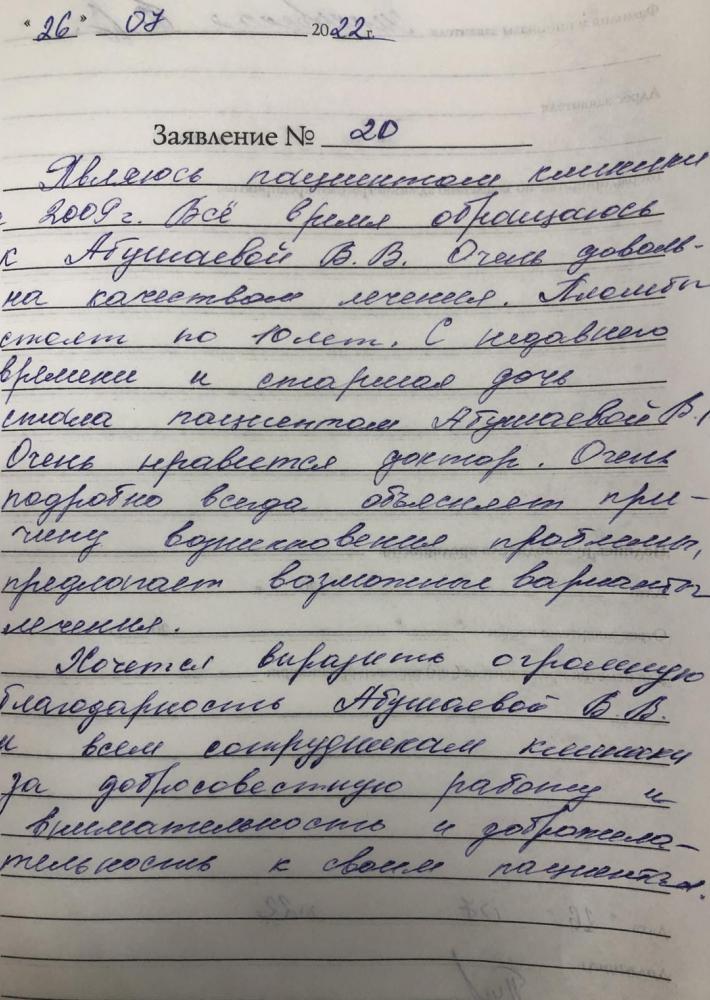 "26" 07 2022г.
Заявление № 20
Являюсь пациентом клиники
с 2009 г. Всё время обращаюсь
к Абушаевой В.В. Очень доволь-
на качеством лечения. Пломбы
стоят по 10 лет. С недавнего
времени и старшая дочь
стала пациентом Абушаевой В.
Очень нравится доктор. Очень
подробно всегда объясняет при-
чину возникновения проблемы,
предлагает возможные варианты
лечения.
Хочется выразить огромную
благодарность Абушаевой В.В.
и всем сотрудникам клиники
за добросовестную работу и
внимательность и доброжела-
тельность к своим пациентам.